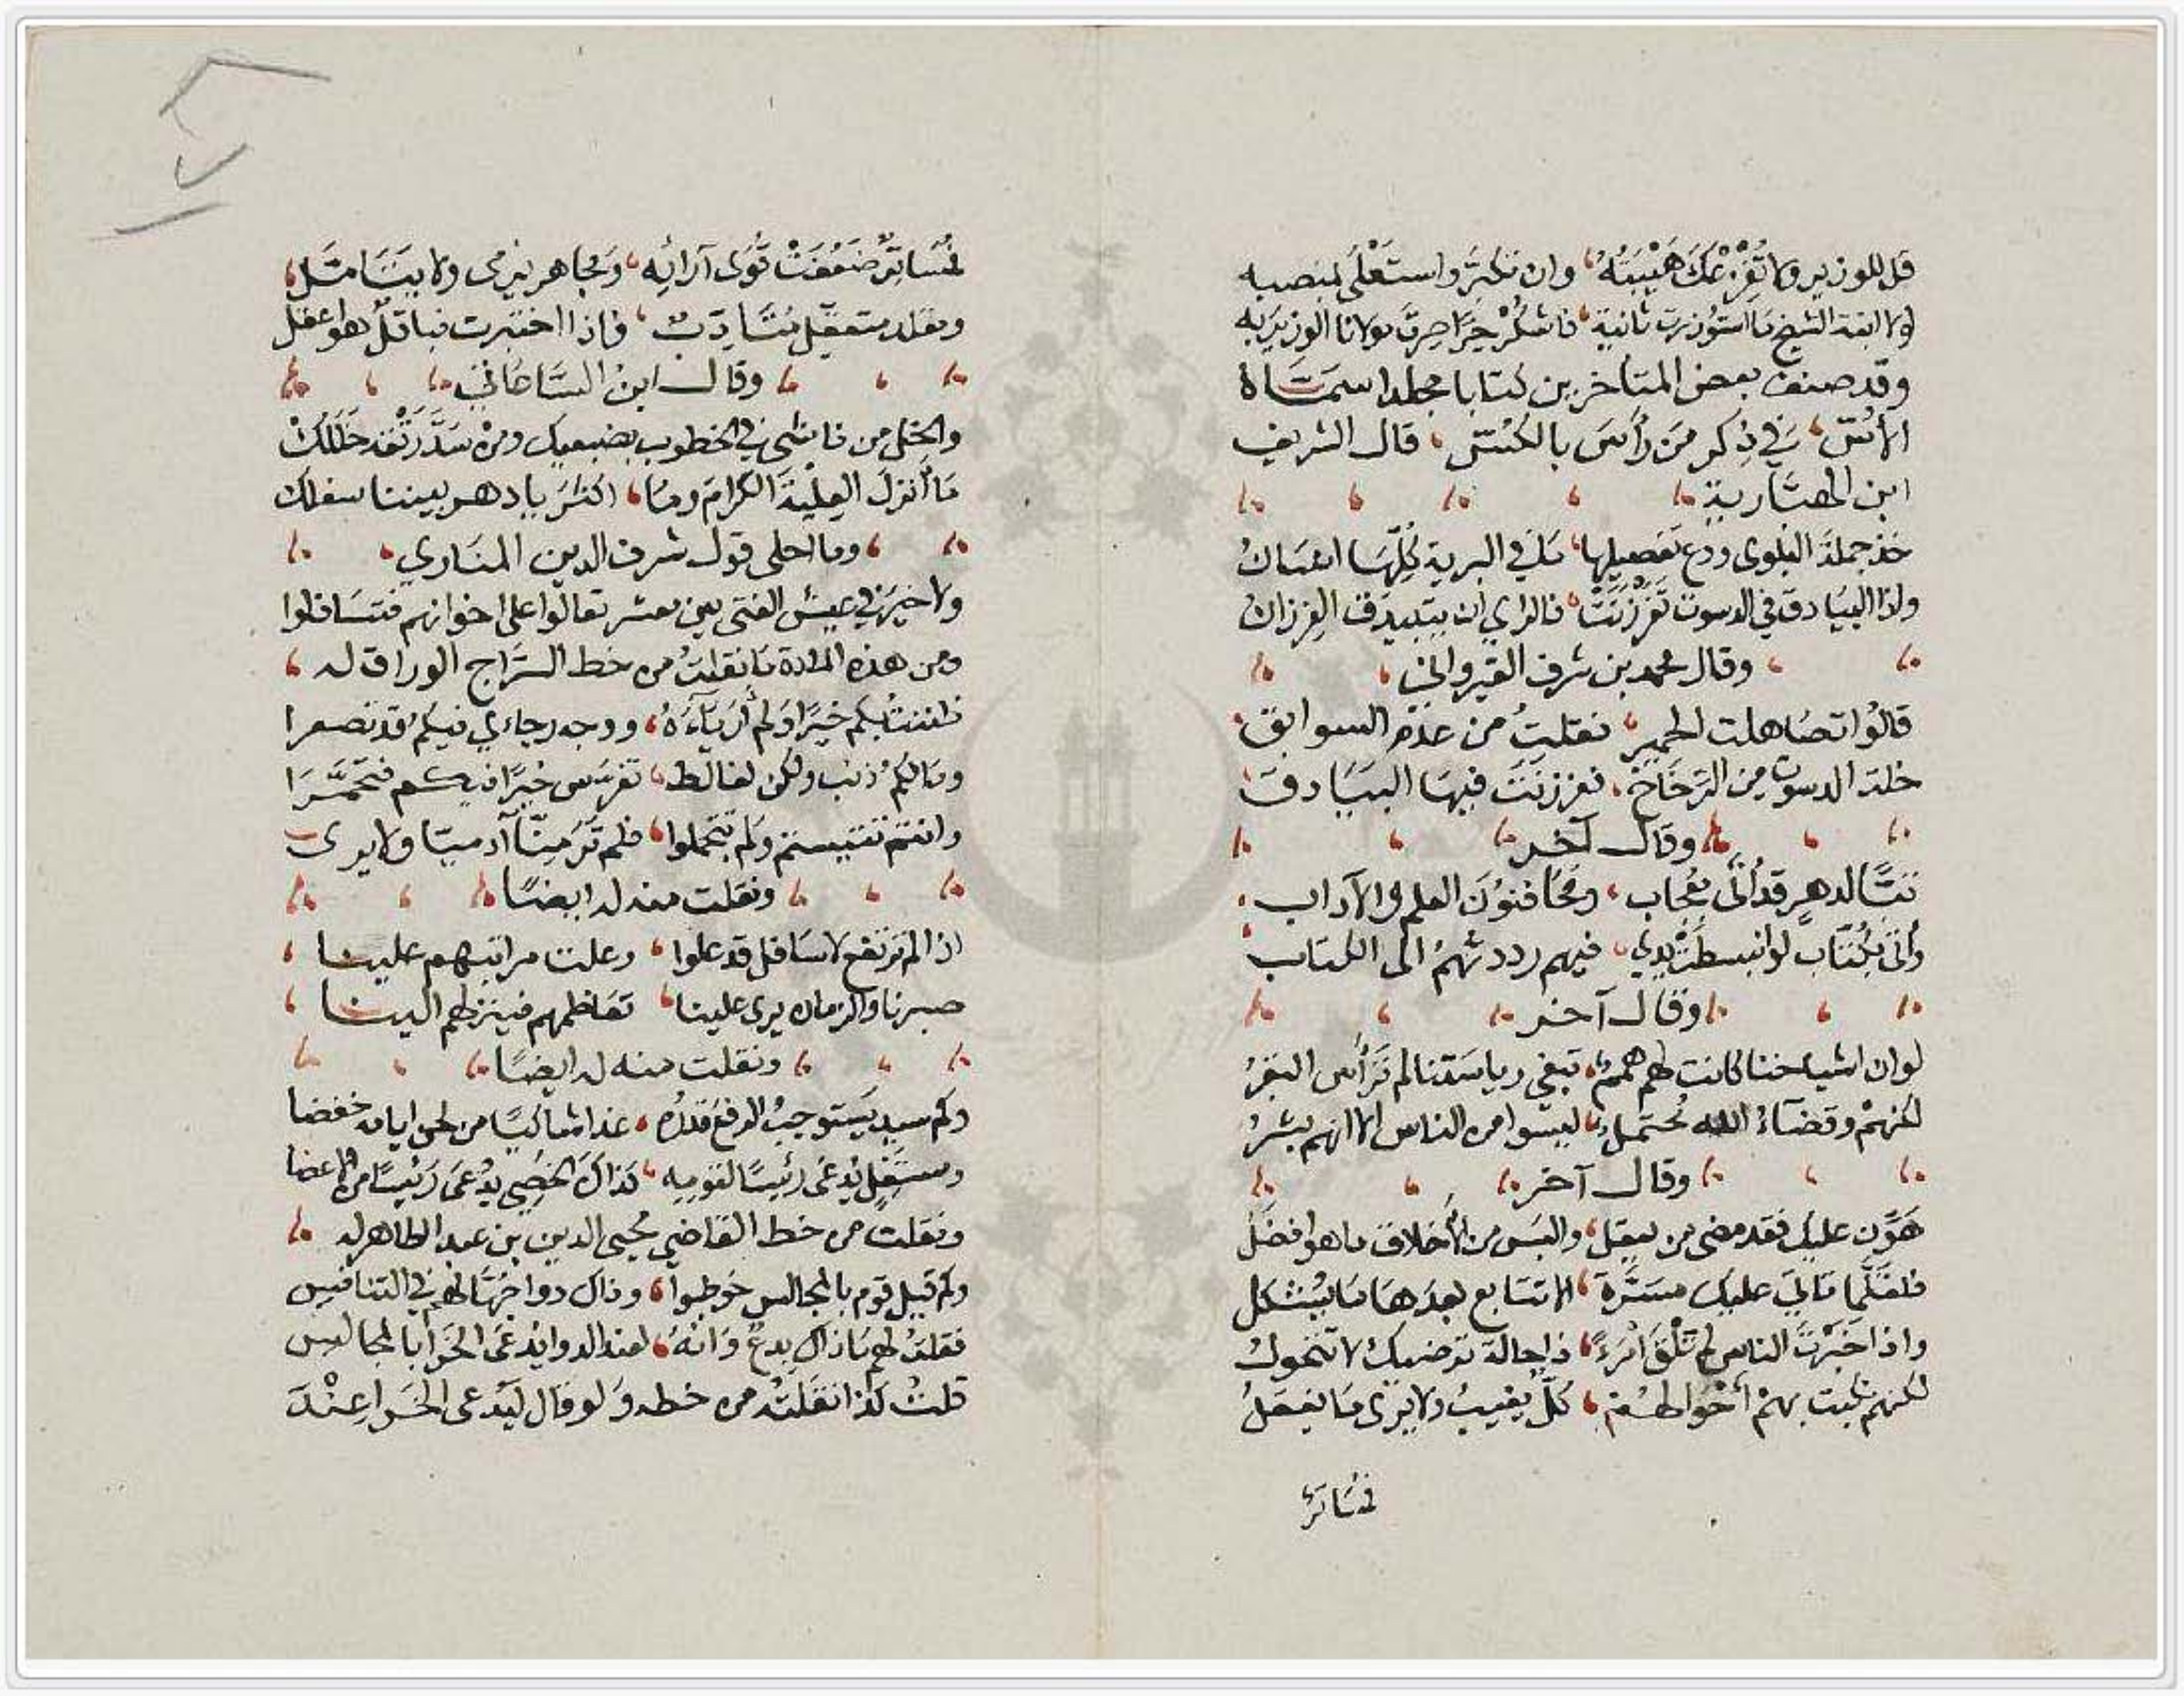 قل للوزير ولا تُفْزِعْكَ هَيْبَتُهُ، وان تكبَّر واستَعْلَى بمنصبه
لولا ابنة الشيخ مَا استَوُزرتَ ثانيةً، فاشكُرْ حِرًا صِرتَ مولانا الوزيرَ بِه
وقد صنف بعض المتاخرين كتابا مجلدا سمَّاهُ
الأُسّ، في ذِكر مَن رأسَ بالكُسّ، قال الشريف
ابن الهبَّارية
خذ جملةَ البَلوى ودع تفصيلها، مَا في البرية كُلِّهَا انسَانُ
واذا البيَادق في الدسوت تَفَرْزَنَتْ، فالراي ان يتبيدق الفِرزانُ
وقال محمد بن شرف القيرواني
قالُوا تصَاهلت الحمير، فقلتُ من عدَم السوابق
خلت الدسوت من الرِّخَاخ، ففرزَنَتْ فيهَا البيَادق
وقال آخر
تبًّا لدهرٍ قد أتَى بعُجاب، ومحَا فنُونَ العلم والآداب
وأتى بكُتّاب لو انبسطَتْ يدي، فيهم رددتُهمُ الى الكتاب
وقال آخر
لو ان اشياخنا كانت لهم هممٌ، تبغي رياسَتنا لم تَرْأَس البقرُ
لكنهمْ وقضَاءُ الله مُحتمَلٌ، ليسوا من الناس الا انهم بشرُ
وقال آخر
هَوِّن عليك فقد مضى من يعقل، والبَس من الأخلاق ما هو افضَلُ
فلقلَّما تاتي عليك مسَرَّة، الا تتَابع بعدَهَا مَا يُشْكل
واذا خَبَرْتَ الناس لم تَلْقَ امْرَءًا، ذا حالة ترضيك لا تتحولُ
لكنهم بهمْ أحْوَالهُم، كلٌّ يغيبُ ولا يَرى مَا يفعَلُ
فمُسَاترٌ
فمُسَاتِرٌ ضعُفَتْ قُوَى آرائِه، ومُجاهر يَرْمى ولا يتَأمَّل
ومقلد متعقِّل متَأدِّبٌ، فاذا اختبرت فباقلٌ هو اعقل
وقال ابنُ السَّاعَاتي
والخِل من فَاشى في الخطوب بضبعيك ومنْ سَدَّ رَتْقه خَلَلَكْ
مَا أنزل العِليَةَ الكرامَ وما، اكثرَ يا دهر بيننا سفلك
وما احلى قول شرف الدين المنَاوي
ولا خيرَ في عيش الفتى بين معشر تعالَوا على اخوانهم فتسَافلوا
ومن هذه المادة مَا نقلتُ من خط السِّرَاج الوراق له
ظننتُ بكم خيرًا ولم أرَ بَاءَهُ، ووجه رجاءي فيكم قد تصعرا
ومَا لكم ذنب ولكن لغالط، تفرس خيرًا فيكم فتحَمَّرَا
وانتم تتيستم ولم تتحملوا، فلم تَرَ مِنّا آدميًا ولا يرى
ونقلت منه له ايضًا
اذا لم ترتفع لاسَافل قد علوا، وعلت مراتبهم علينا
صبرنا والزمان يرى علينا، تعَاظمهم فينزلهم الينا
ونقلت منه له ايضًا
وكم سيدٍ يَستوجبُ الرفعَ قدرُه، غدا شاكيًا من لحن ايامه خفضا
ومستَفِلٍ يُدعَى رئيسًا لقومِه، كذاك الخُصي يدُعَى رَئيسًا من الاعضا
ونقلت من خط القاضي مُحيي الدين بن عبد الظاهر له
وكم قيل قوم بالمجالس خوطبوا، وذاك دواخُهَا لهم في التنافس
فقلتُ لهم مَا ذاك بِدعٌ وَانّهُ، لعند الدوا يُدعَى الخَرا بالمجالس
قلتُ كذا نقلتُه من خطه وَلو قال ليَدعى الخَرا عِنْدَ